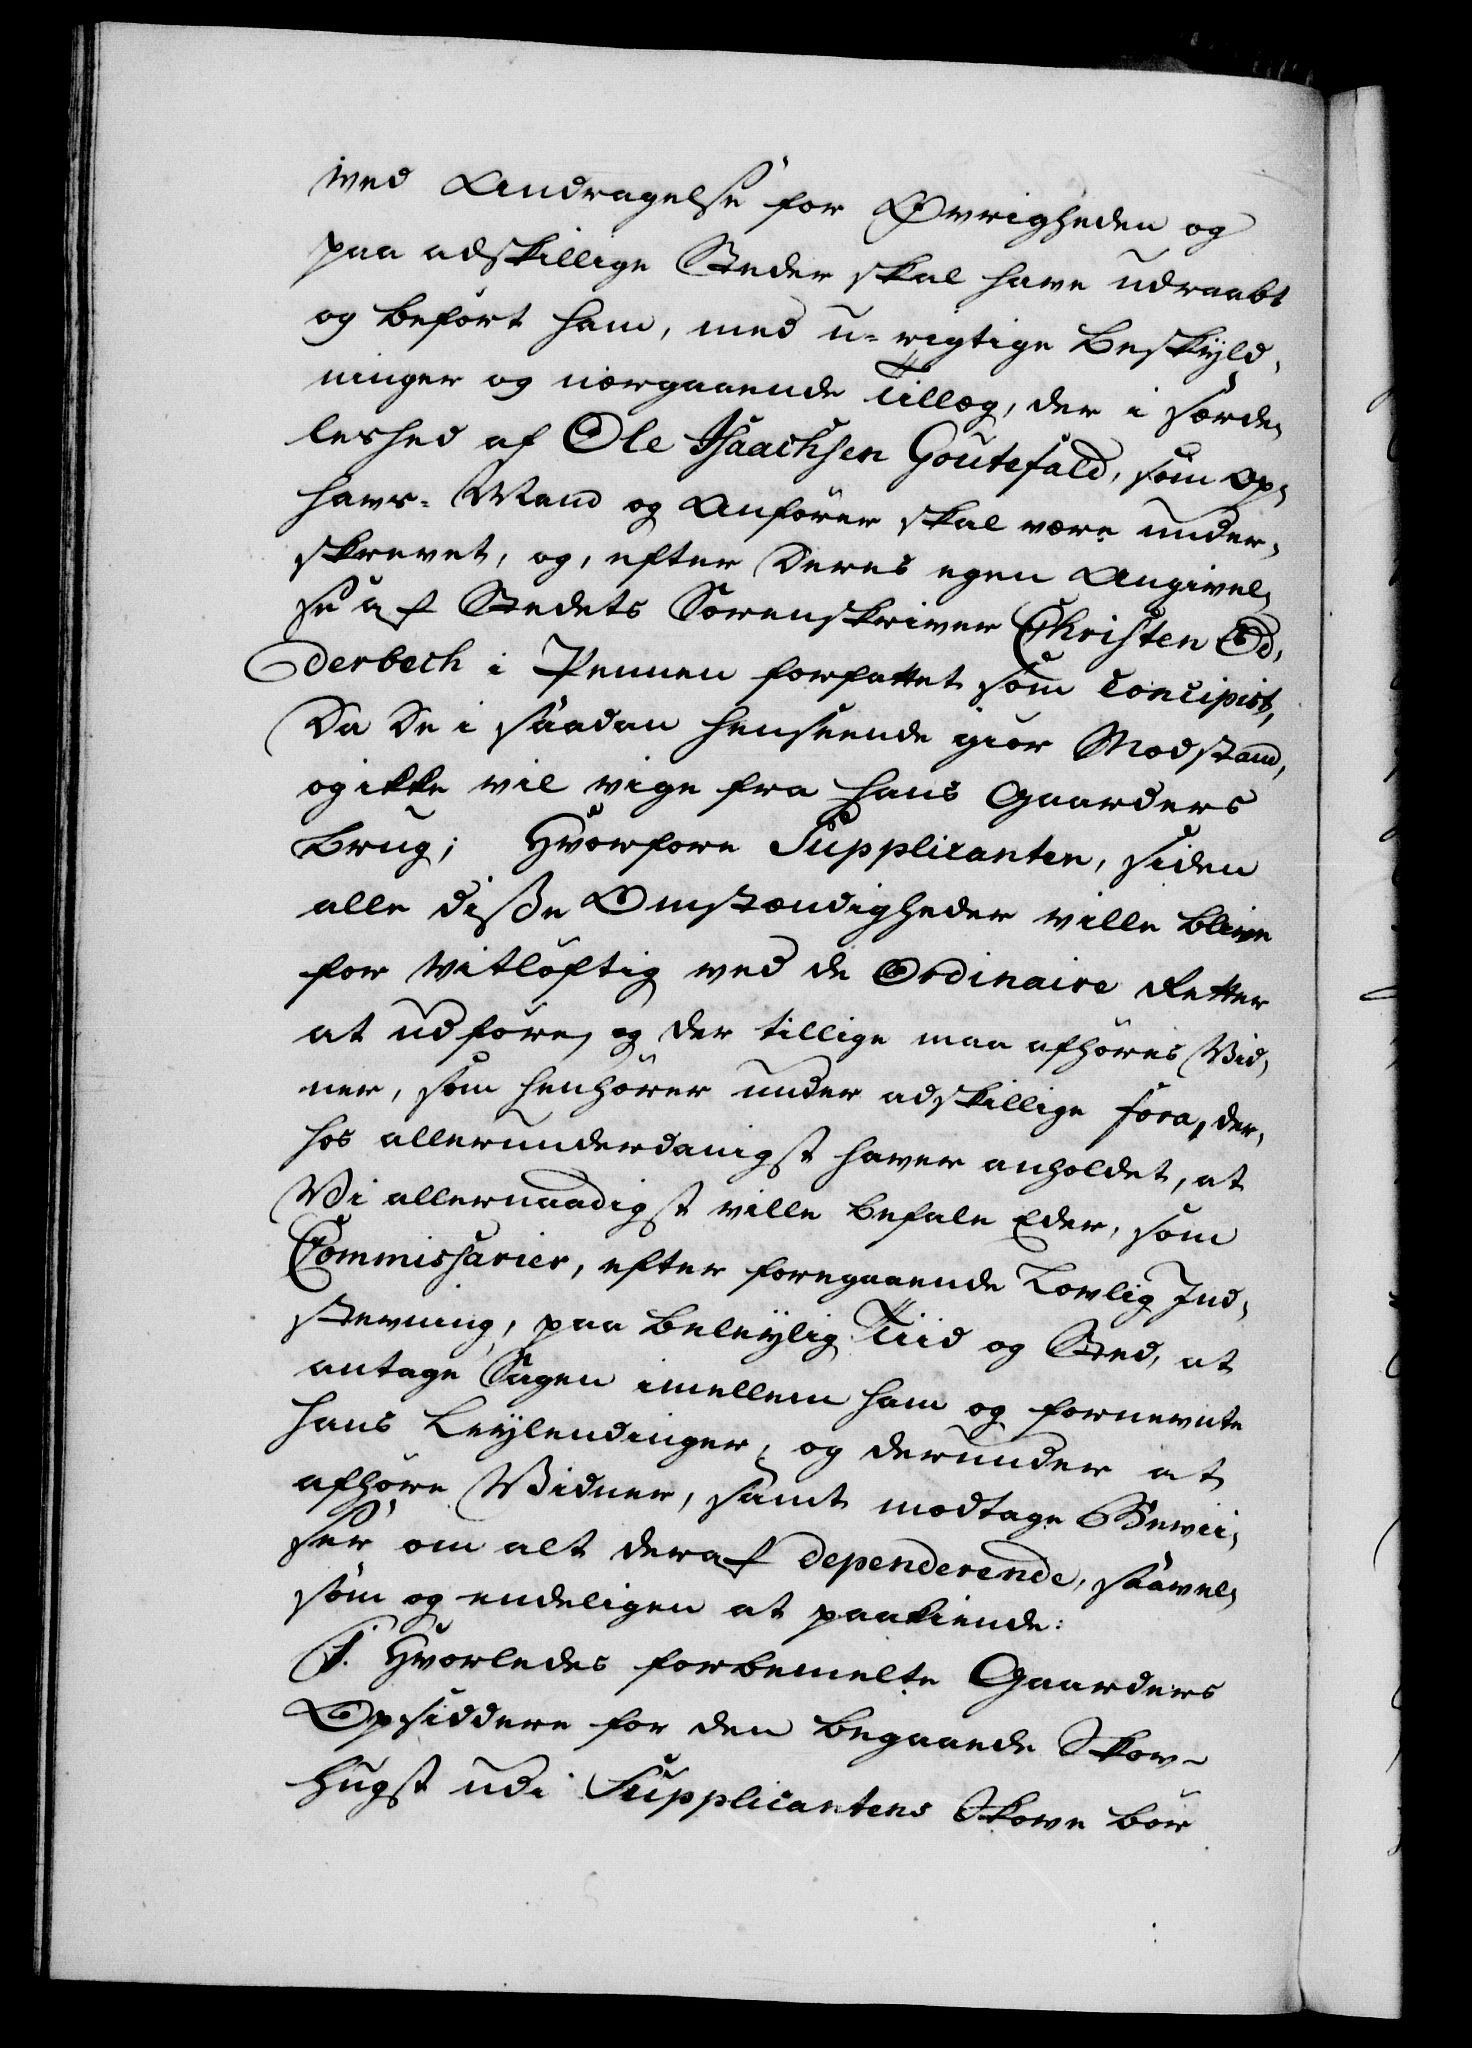 ved Andragelse for Øvrigheden og
paa adskillige Steder skal have udraabt
og beført ham, med u-rigtige Beskyld,
ninger og nærgaaende Tillæg, der i særde,
leshed af Ole Isaachsen Goutefald, som Op,
havs-Mand og Anfører skal være under,
skrevet, og, efter deres egen Angivel,
se af Stedets Sorenskriver Christen Od,
derbech i Pennen forfattet som concipist,
Da de i saadan henseende giør Modstand,
og ikke vil vige fra hans Gaarders
Brug; Hvorfore Supplicanten, siden
alle disse Omstændigheder ville blive
for vitløftig ved de Ordinaire Retter
at udføre, og der tillige maa afhøres Vid,
ner, som henhører under adskillige fora, der,
hos allerunderdanigst haver anholdet, at
Vi allernaadigst ville befale Eder, som
Commissarier, efter foregaaende Lovlig Ind,
stevning, paa beleylig Tiid og Sted, at
antage Sagen imellem ham og fornevnte
hans Leylendinger, og derunder at
afhøre Vidner, samt modtage Bevii,
ser om alt deraf dependerende, saavel,
som og endeligen at paakiende:
1. Hvorledes forbemelte Gaarders
Opsiddere for den begaaende Skov-
hugst udi Supplicantens Skove bør